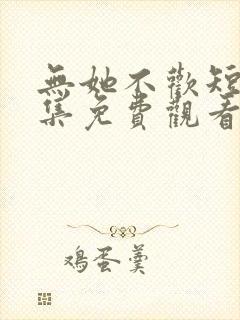 無她不歡短
集免費觀看
鸡蛋羹